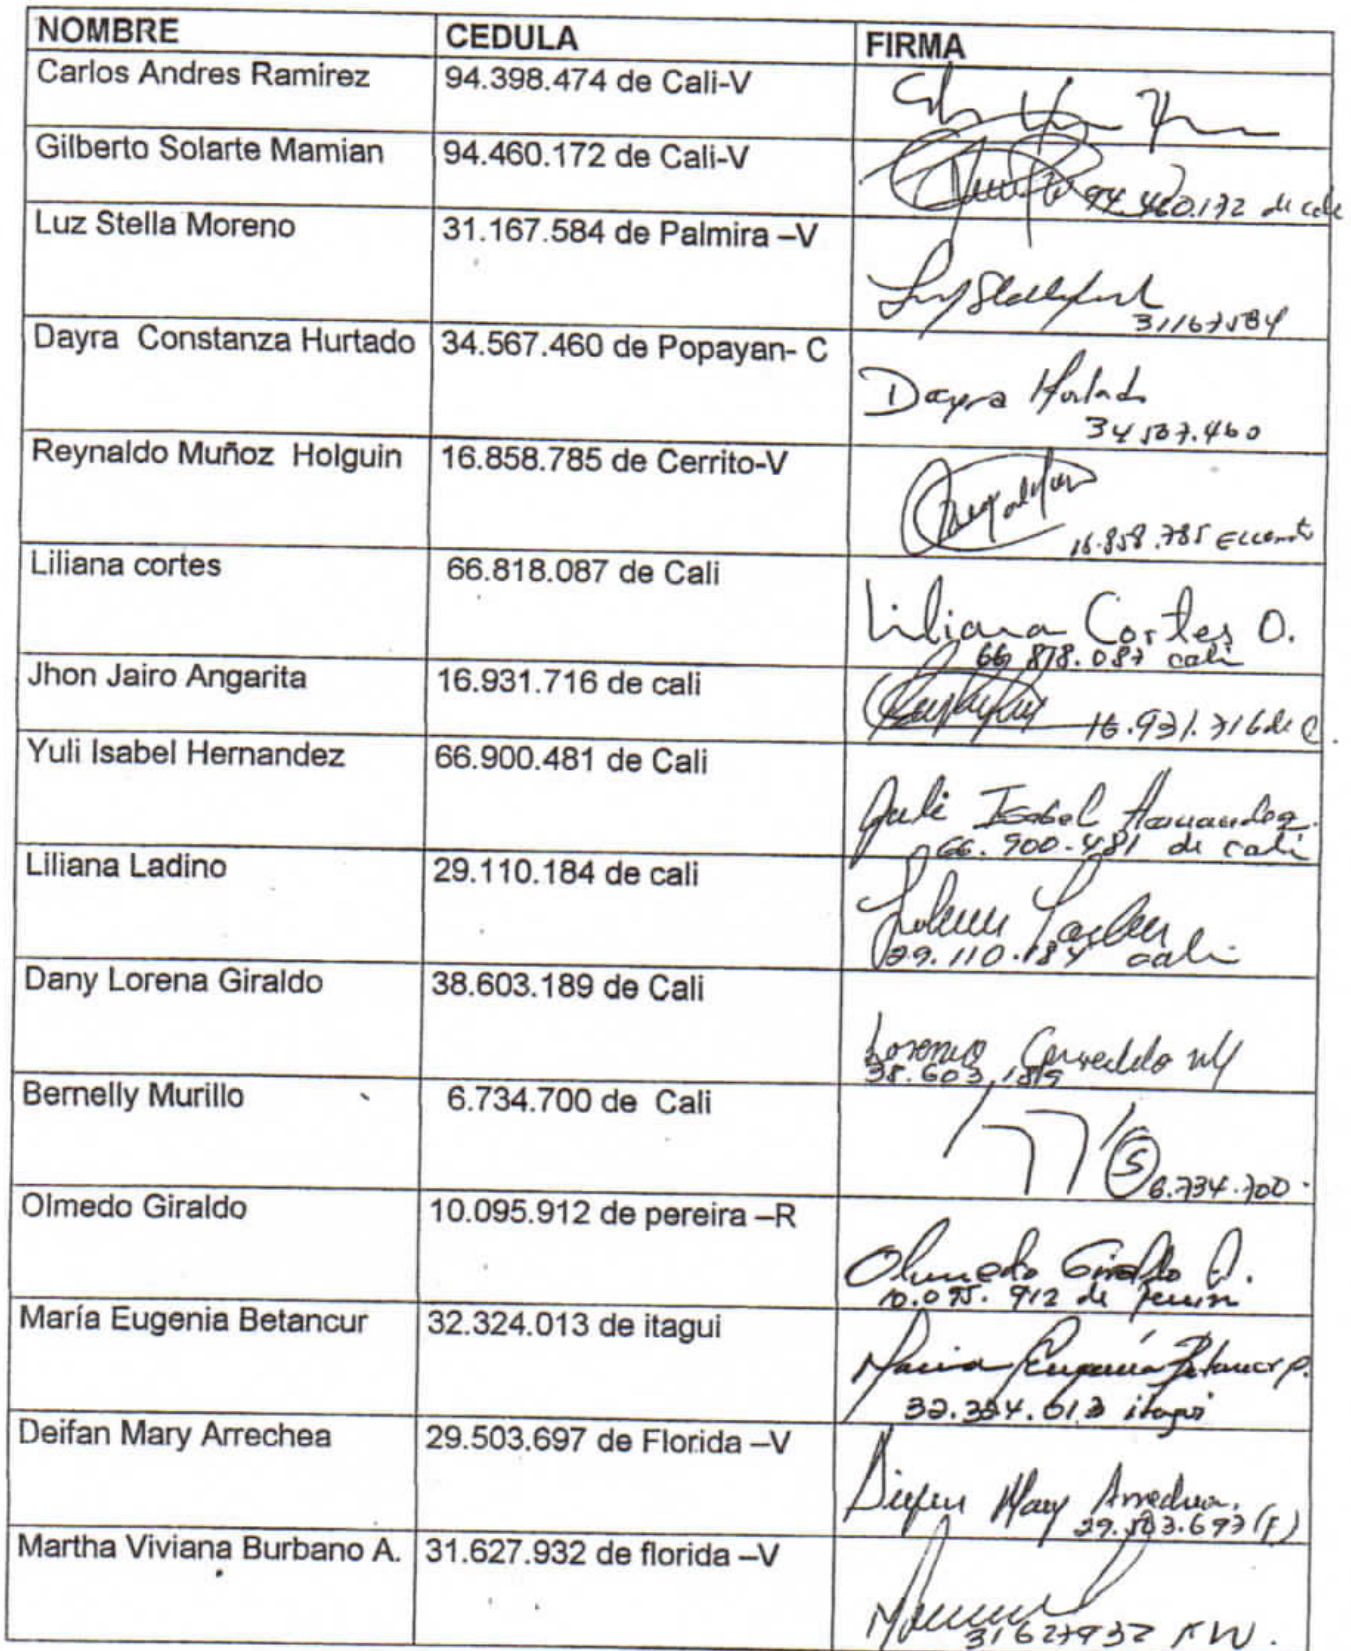 NOMBRE CEDULA FIRMA
Carlos Andres Ramirez 94.398.474 de Cali-V
Gilberto Solarte Mamian 94.460.172 de Cali-V
94.460.172 de cali
Luz Stella Moreno 31.167.584 de Palmira –V
31167584
Dayra Constanza Hurtado 34.567.460 de Popayan- C
Dayra Hurtado
34567.460
Reynaldo Muñoz Holguin 16.858.785 de Cerrito-V
16.858.785 El cerrito
Liliana cortes 66.818.087 de Cali
Liliana Cortes O.
66 818.087 cali
Jhon Jairo Angarita 16.931.716 de cali
16.931.716 de C
Yuli Isabel Hernandez 66.900.481 de Cali
Yuli Isabel Hernandez
66.900.481 de cali
Liliana Ladino 29.110.184 de cali
29.110.184 cali
Dany Lorena Giraldo 38.603.189 de Cali
Lorena Giraldo
38.603.189
Bernelly Murillo 6.734.700 de Cali
6.734.700
Olmedo Giraldo 10.095.912 de pereira –R
Olmedo Giraldo
10.095.912 de
María Eugenia Betancur 32.324.013 de itagui
Maria Eugenia Betancur
32.324.013 itagui
Deifan Mary Arrechea 29.503.697 de Florida –V
Deifan Mary Arrechea.
29.503.697 (F)
Martha Viviana Burbano A. 31.627.932 de florida –V
31627932